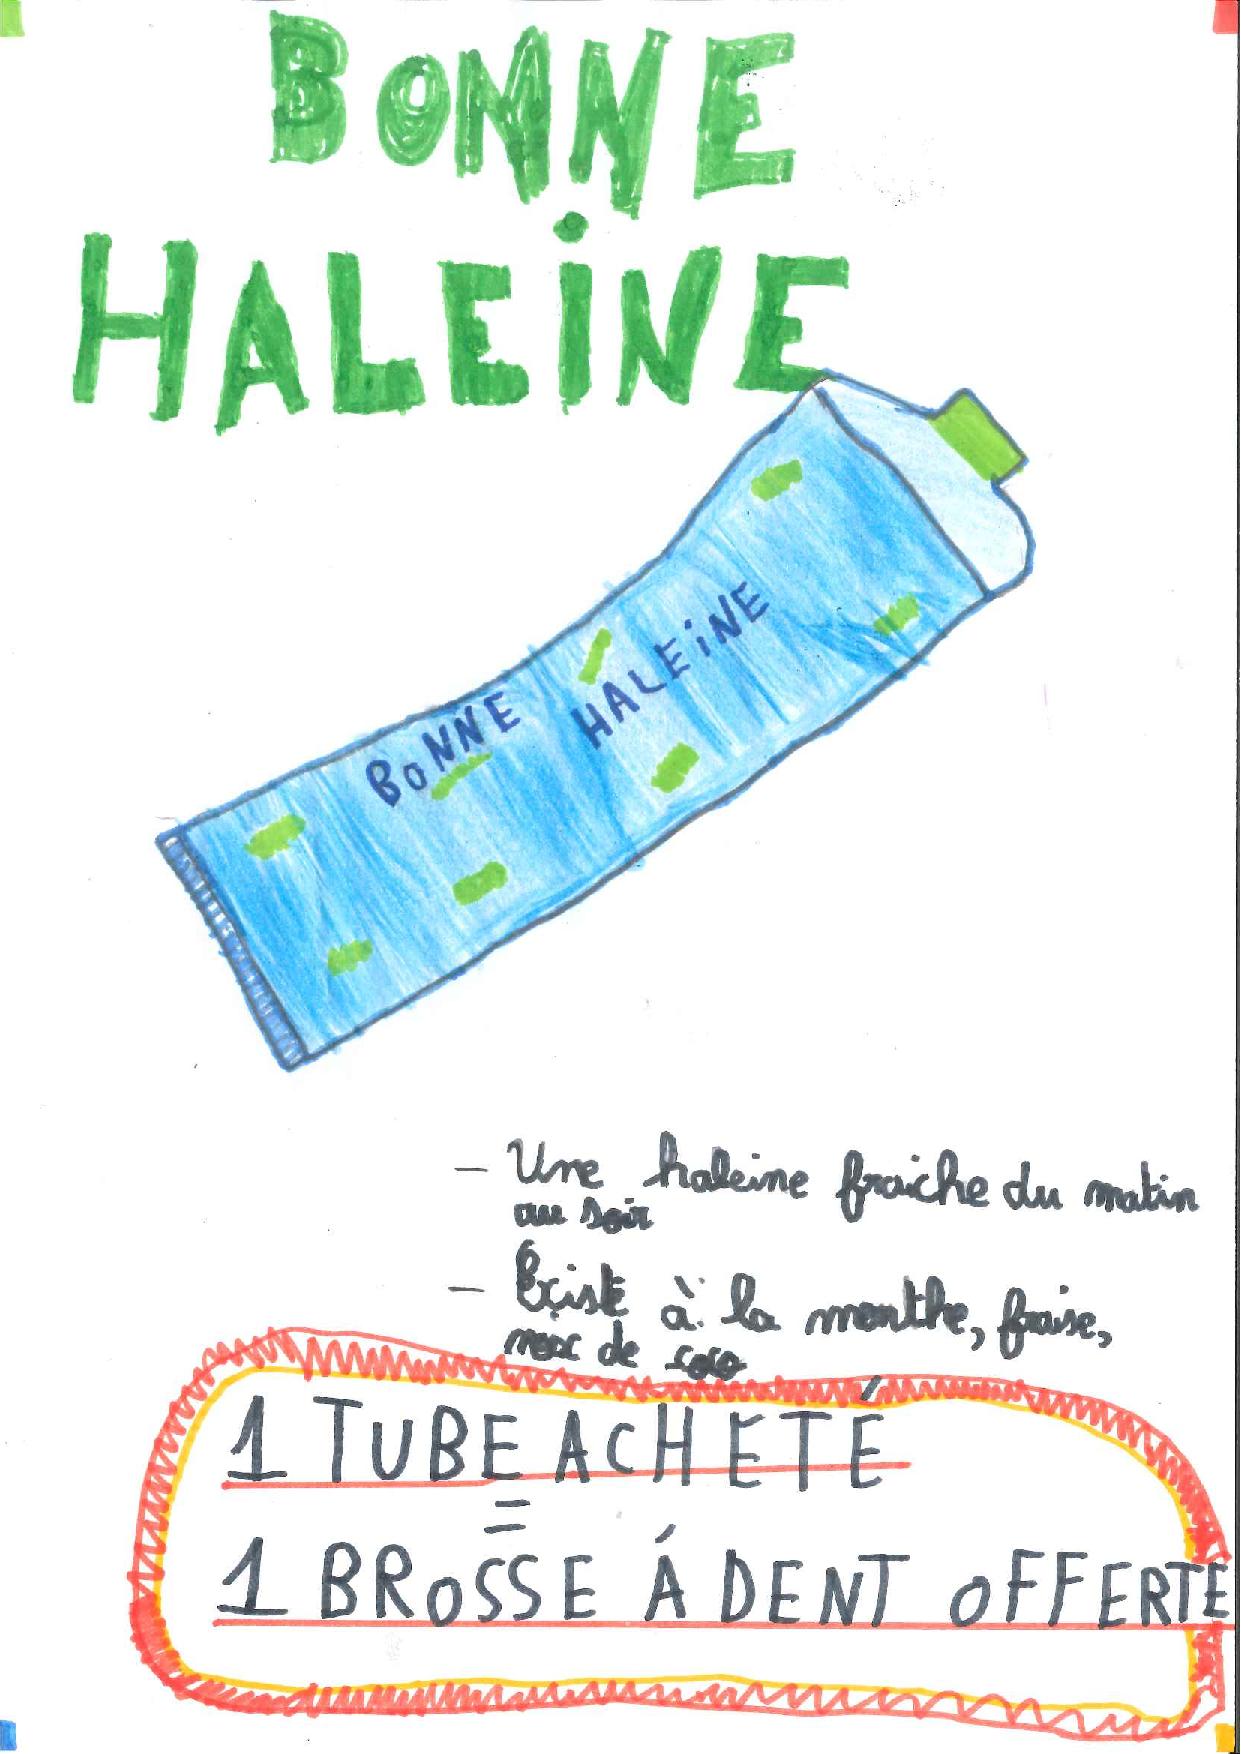 BONNE
HALEINE
BONNE HALEINE
- Une haleine fraiche du matin
au soir
- Éxiste à la menthe, fraise,
noix de coco
1 TUBE ACHETÉ
=
1 BROSSE Á DENT OFFERTE